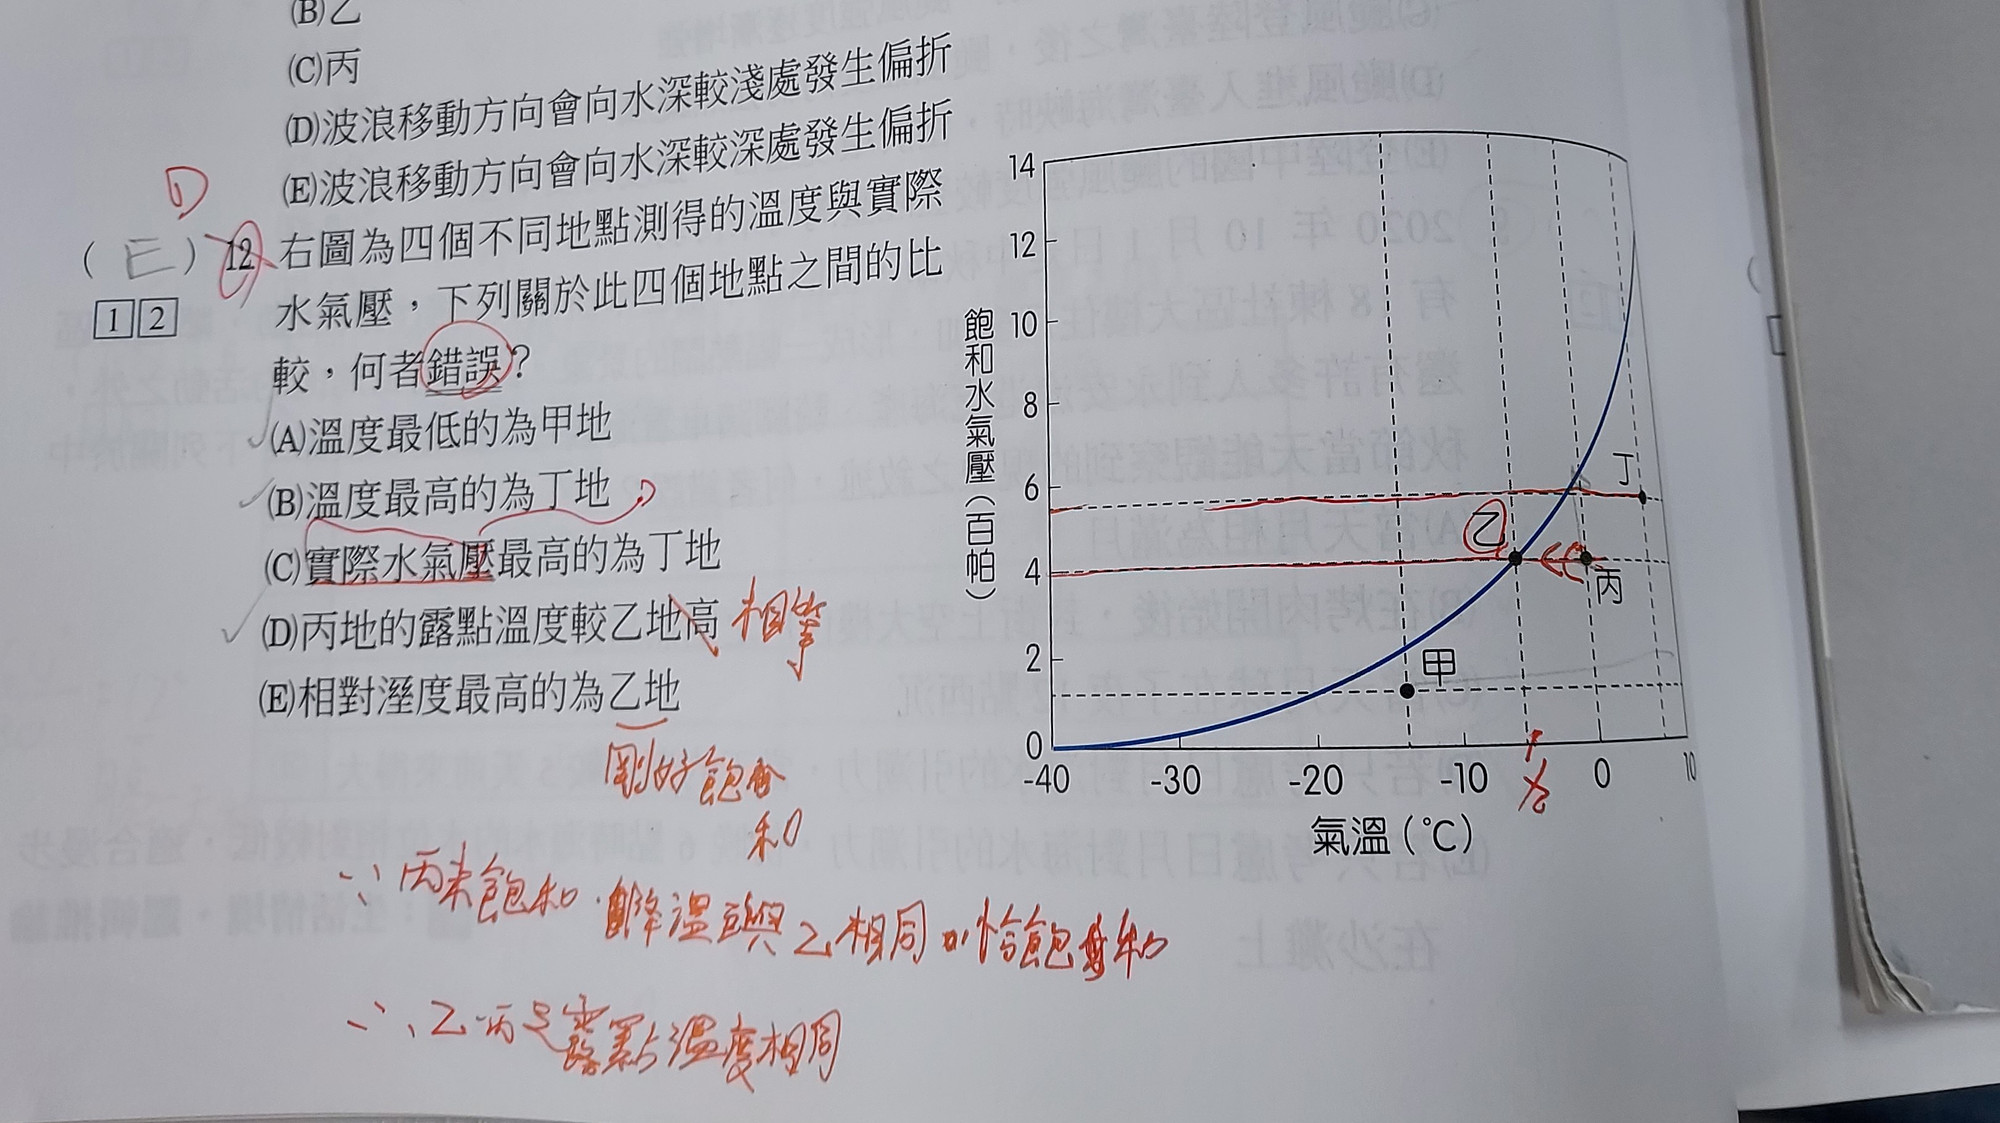 (B)乙
(C)丙
(D)波浪移動方向會向水深較淺處發生偏折
(E)波浪移動方向會向水深較深處發生偏折
D
( E ) 12 右圖為四個不同地點測得的溫度與實際
1 2 水氣壓，下列關於此四個地點之間的比
較，何者錯誤？
(A)溫度最低的為甲地
(B)溫度最高的為丁地
(C)實際水氣壓最高的為丁地
(D)丙地的露點溫度較乙地高 相等
(E)相對溼度最高的為乙地
剛好飽
和
∵丙未飽和
降溫與乙相同
恰飽和
∴乙丙
露點溫度相同
飽和水氣壓（百帕）
14
12
10
8
6
4
2
0
丁
乙
丙
甲
-40 -30 -20 -10 0 10
氣溫(℃)